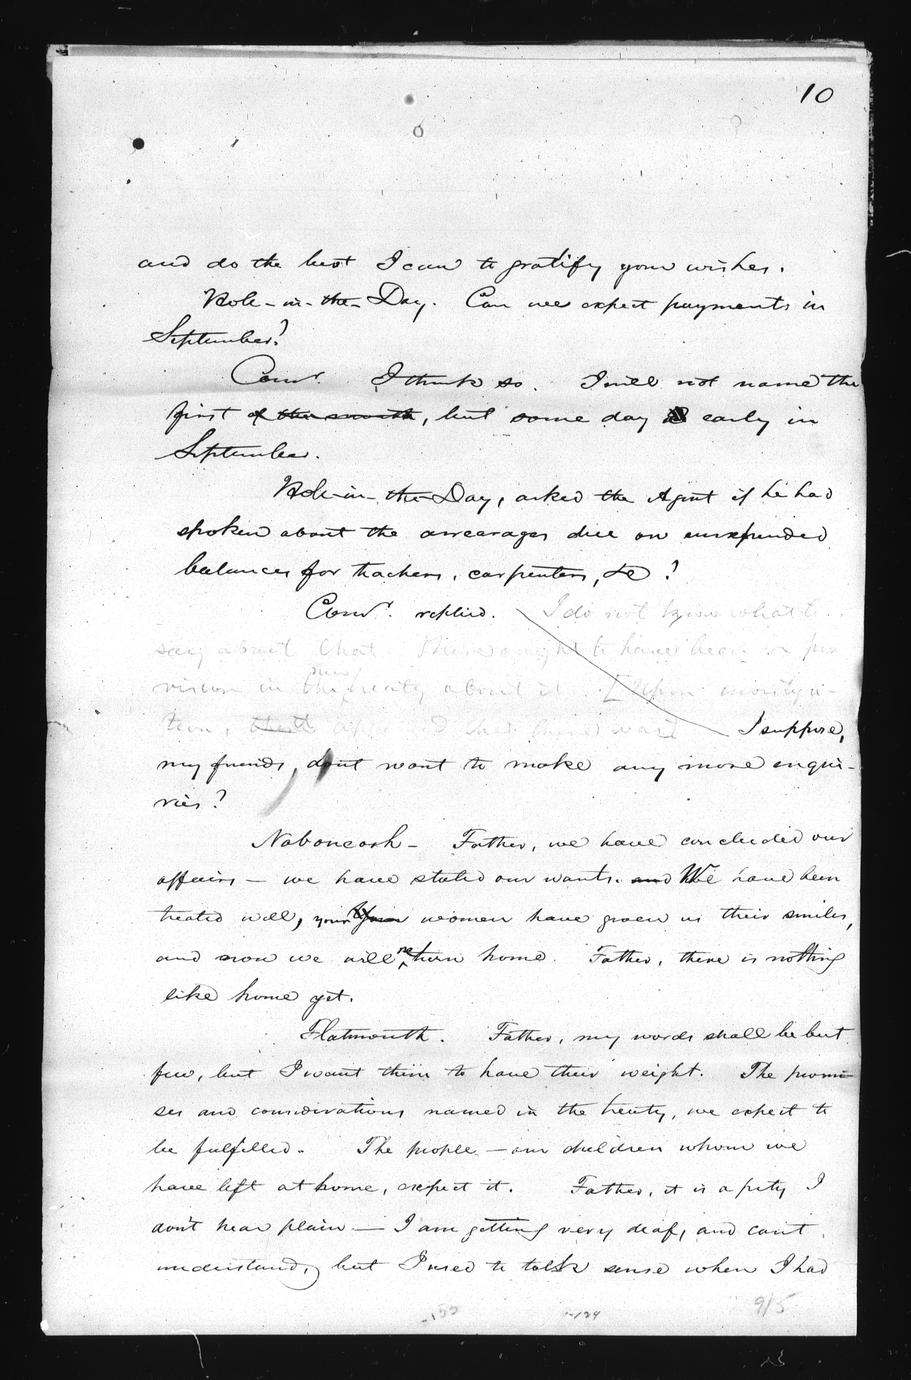 10
and do the best I can to gratify your wishes.
Hole-in-the-Day. Can we expect payments in
September?
Comr. I think so. I will not name the
first of the month, but some day early in
September.
Hole-in-the-Day, asked the Agent if he had
spoken about the arrearages due on unexpended
balances for teachers, carpenters, &c?
Comr. replied. I do not know what to
say about that. There ought to have been a pro
vision in the treaty about it. [Upon
I suppose,
my friends, dont want to make any more enqui-
ries?
Naboneash - Father, we have concluded our
affairs - we have stated our wants. and We have been
treated well, your women have given us their smiles,
and now we will return home. Father, there is nothing
like home yet.
Flatmouth. Father, my words shall be but
few, but I want them to have their weight. The promi-
ses and considerations named in the treaty, we expect to
be fulfilled. The people - our children whom we
have left at home, expect it. Father, it is a pity I
don't hear plain - I am getting very deaf, and cant
understand, but I used to talk sense when I had
915